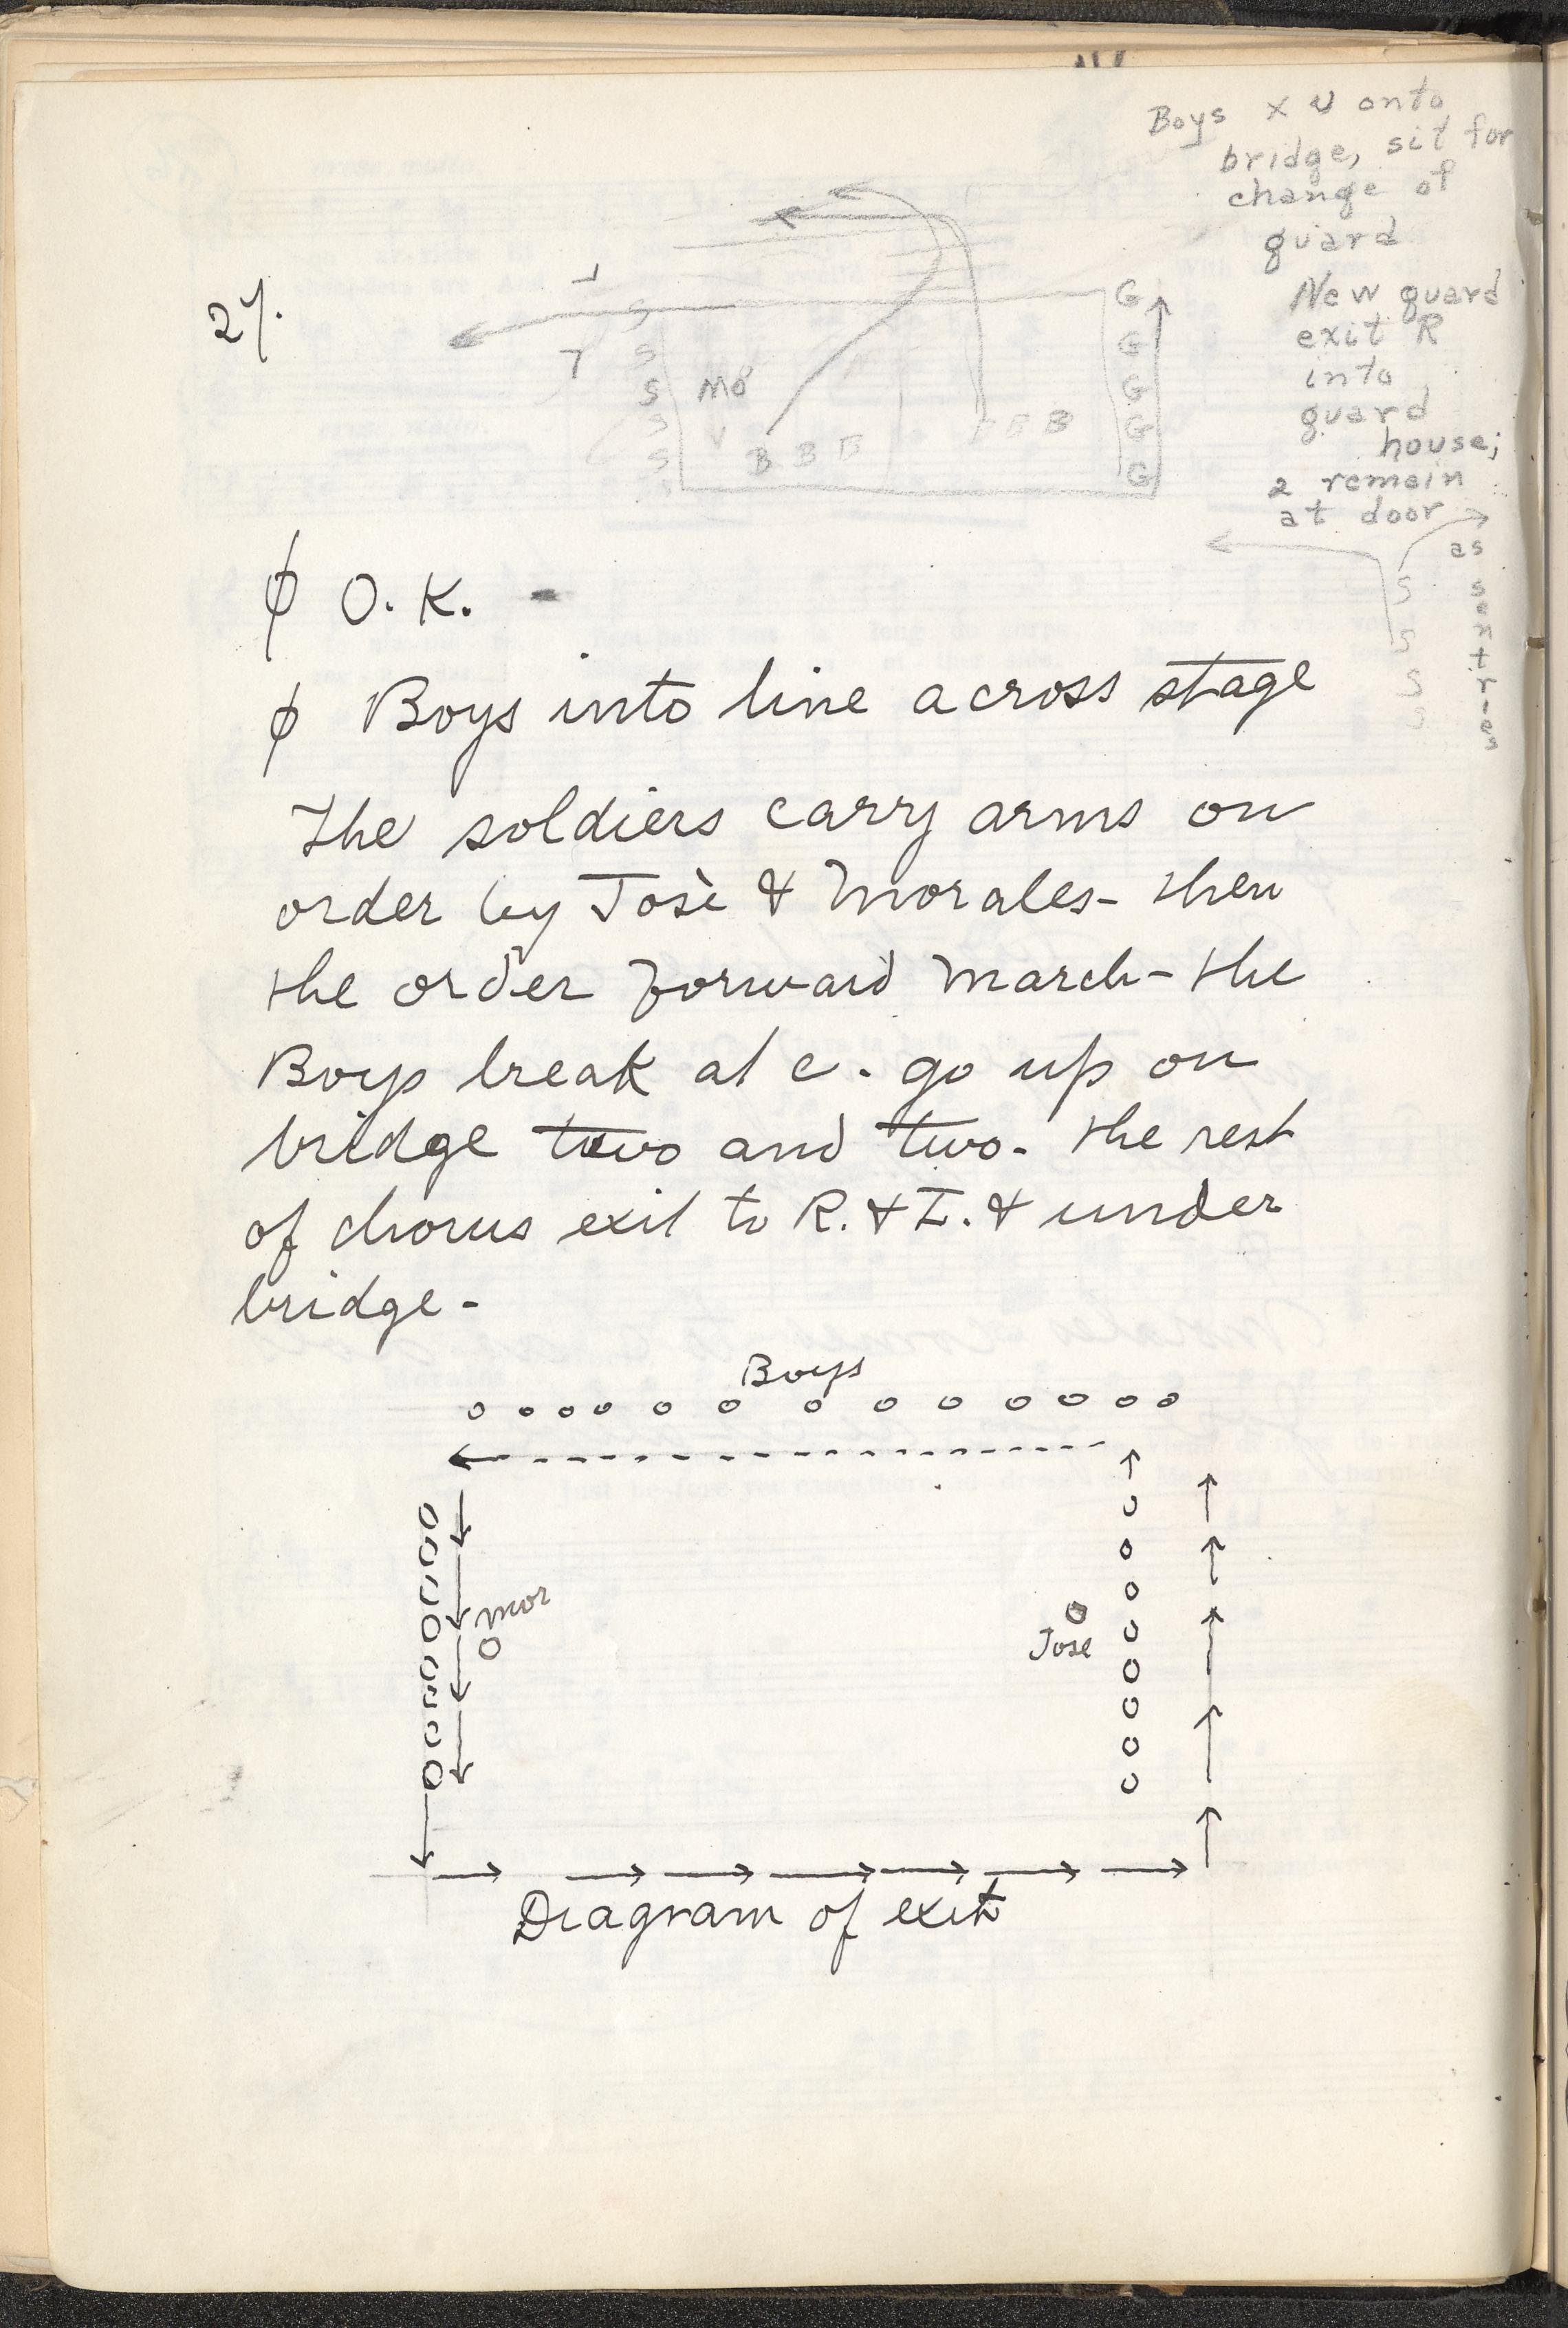 Boys x U onto
bridge, sit for
change of
guard
New guard
exit R
into
guard
house;
2 remain
at door
as
sentries
27.
S
S
S
S
S
Mo
B B B
B B
G
G
G
G
G
S
S
S
S
ϕ O.K. -
ϕ Boys into line across stage
The soldiers carry arms on
order by Josè & Morales - then
the order forward march - the
Boys break at c. go up on
bridge two and two. the rest
of chorus exit to R. & L. & under
bridge -
Boys
Mor
Jose
Diagram of exit